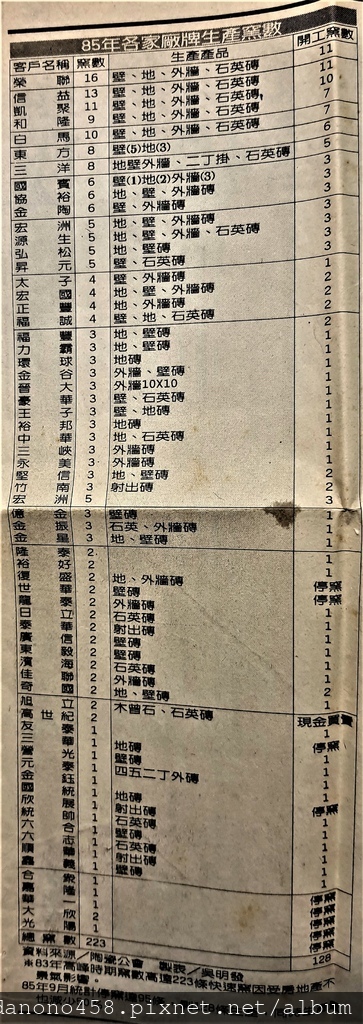 85年各家廠牌生產窯數
客戶名稱 窯數 生產產品 開工窯數
榮聯 16 壁、地、外牆、石英磚 11
信益 13 壁、地、外牆、石英磚 11
凱聚 11 壁、地、外牆、石英磚 10
和隆 9 壁、地、外牆、石英磚 7
白馬 10 壁、地、外牆、石英磚 7
東方 8 壁(5)地(3) 6
三洋 8 地壁外牆、二丁掛、石英磚 5
國賓 6 壁(1)地(2)外牆(3) 3
協裕 6 地、壁、外牆磚 3
金陶 6 壁、外牆磚 3
宏洲 5 地、壁、外牆磚 3
源生 5 地、壁、外牆、石英磚 3
弘松 5 地、壁磚 3
昇元 5 壁、石英磚
太子 4 壁、外牆磚 1
宏國 4 地、壁、外牆磚 2
正豐 4 地、外牆磚 2
福誠 4 地、壁、石英磚 2
福豐 3 地、壁磚 2
力霸 3 地、壁磚 1
環球 3 地磚 1
金谷 3 外牆、壁磚 1
晉大 3 外牆10X10 1
豪華 3 壁、石英磚 1
王子 3 壁、地磚 1
裕邦 3 地磚 1
中華 3 地、石英磚 1
三峽 3 外牆磚 1
永美 3 外牆磚 1
堅信 3 地、壁磚 2
竹南 3 射出磚 2
宏洲 5 3
億金 3 壁磚 1
金振 3 石英、外牆磚 1
金星 3 地、壁磚 1
隆泰 2
裕好 2 1
復盛 2 地、外牆磚 1
世華 2 壁磚 停窯
龍泰 2 外牆磚 停窯
日立 2 石英磚 1
泰華 2 射出磚 1
廣信 2 壁磚 1
東毅 2 壁磚 1
濱海 2 石英磚 1
佳聯 2 外牆磚 1
奇國 2 地、壁磚 2
旭立 2 木曾石、石英磚 1
高世紀 2 現金買賣
友泰 1 1
三華 1 地磚 停窯
營光 1 壁磚 1
元泰 1 四五二丁外磚 1
金鈺 1 1
國統 1 地磚 1
欣展 1 射出磚 停窯
統帥 1 石英磚 1
六合 1 壁磚 1
六志 1 石英磚 1
順 1 射出磚 1
鑫義 1 壁磚 1
合 1
嘉隆 1 停窯
華一 1 停窯
大欣 2 停窯
光陽 1 停窯
總窯數 223 128
資料來源／陶瓷公會 製表／吳明發
※83年高峰時期窯數高達223條快速窯因受房地產不
景氣影響，
85年9月統計停窯達95條
danono458.pixnet.net/album